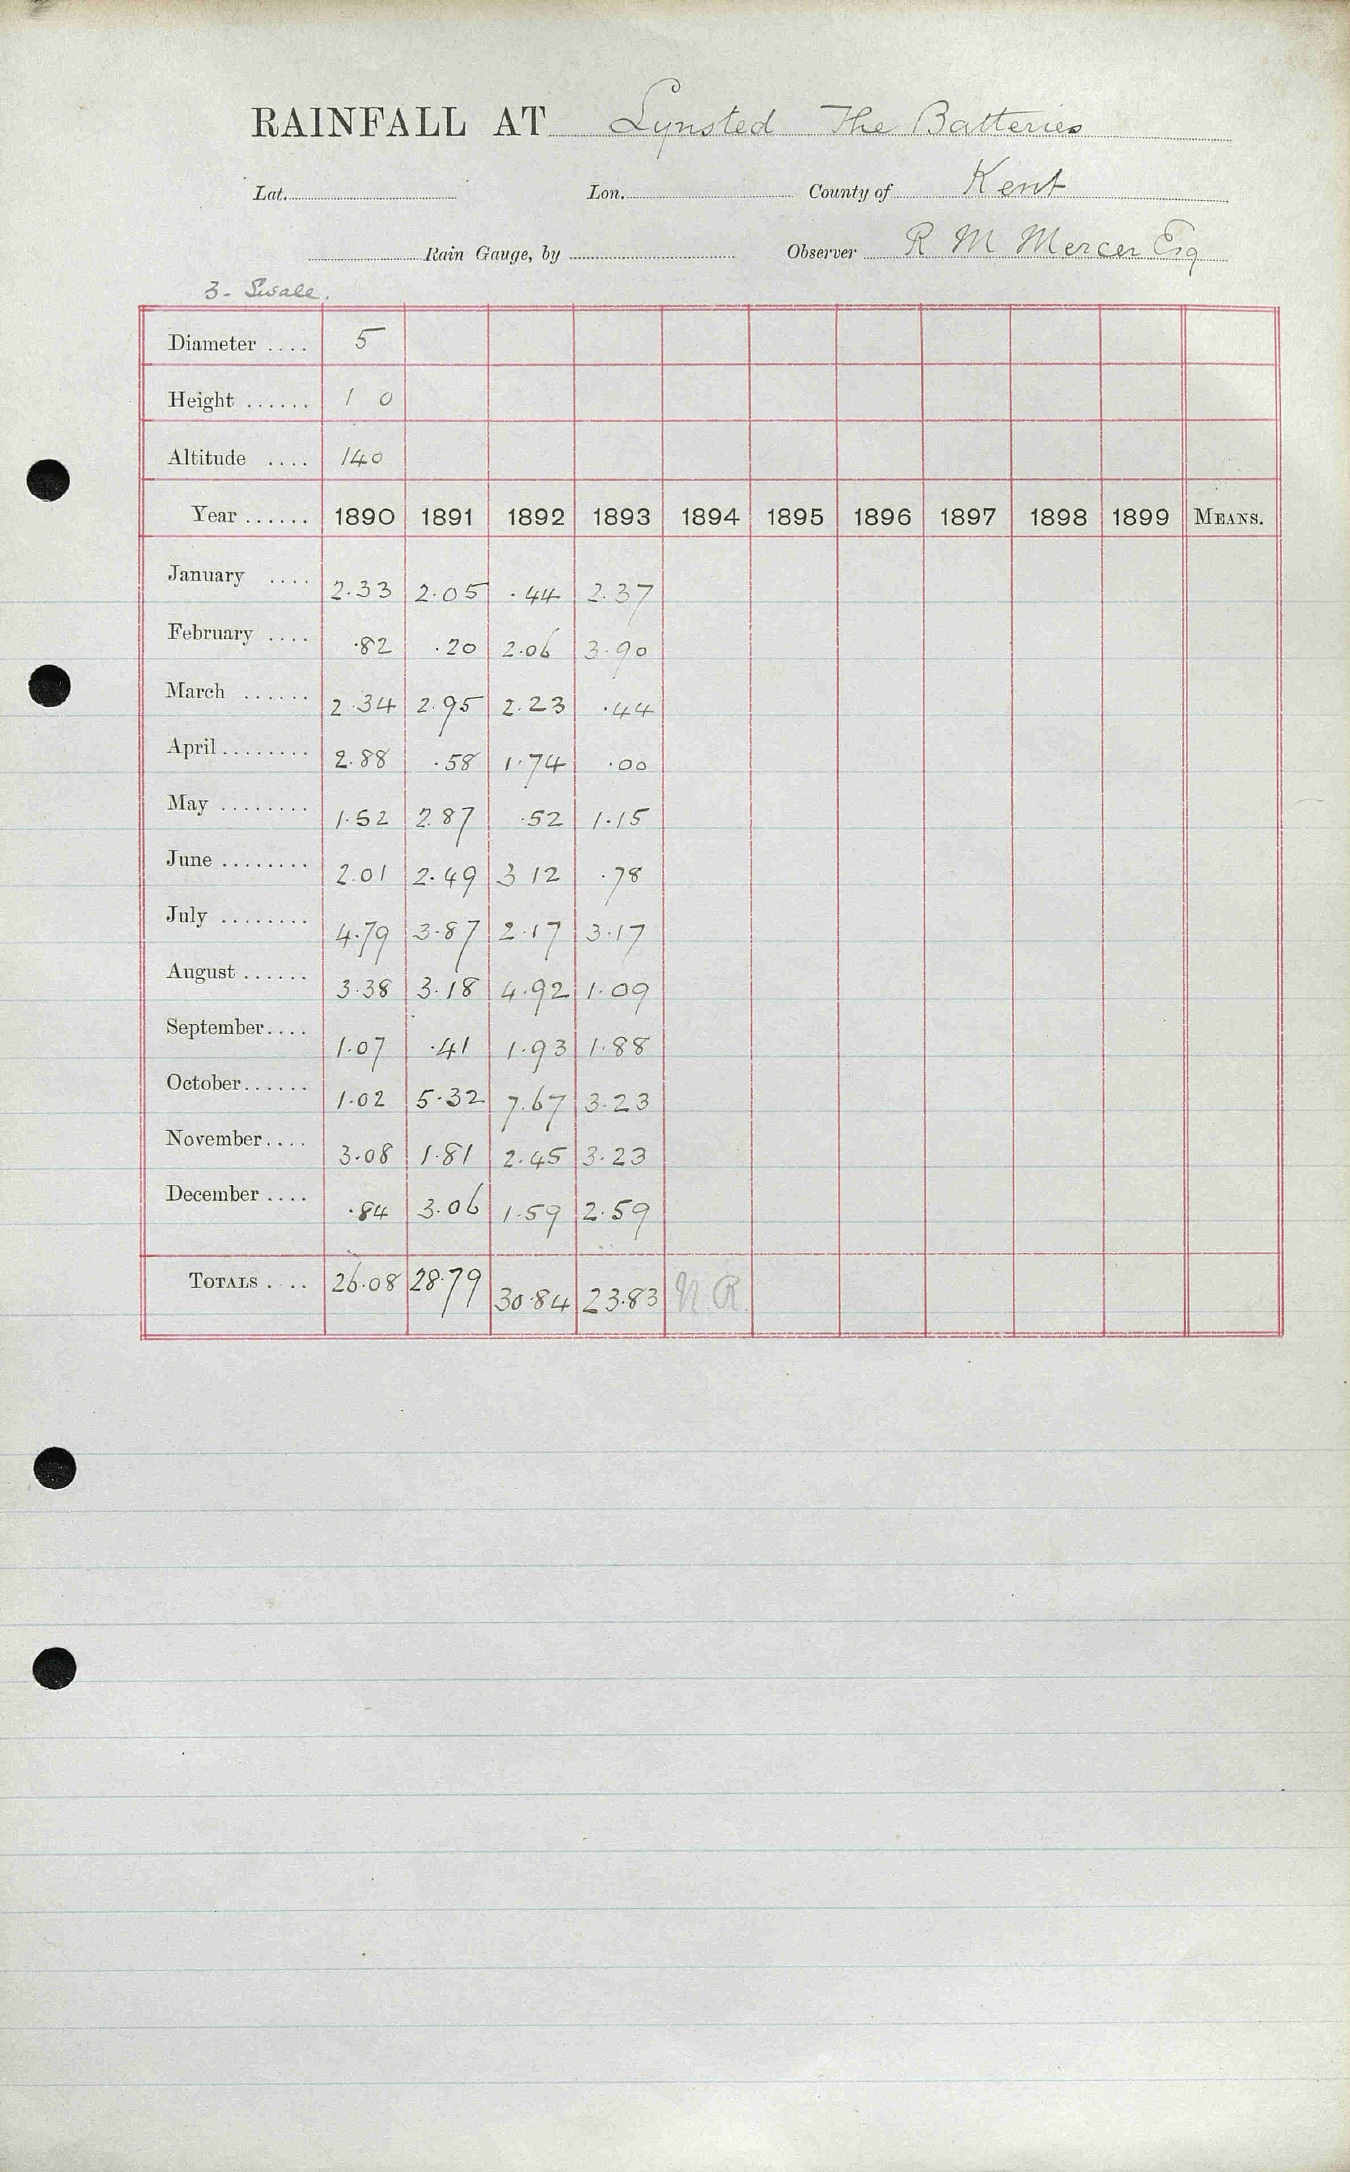 RAINFALL AT Lynsted The Batteries
Lat. Lon. County of Kent
Rain Gauge, by Observer R M Mercer Esq
3 - Swale.
Diameter .... 5
Height ...... 1 0
Altitude .... 140
Year ...... 1890 1891 1892 1893 1894 1895 1896 1897 1898 1899 MEANS.
January .... 2.33 2.05 .44 2.37
February .... .82 .20 2.06 3.90
March ...... 2.34 2.95 2.23 .44
April ........ 2.88 .58 1.74 .00
May ........ 1.52 2.87 .52 1.15
June ........ 2.01 2.49 3 12 .78
July ........ 4.79 3.87 2.17 3.17
August ...... 3.38 3.18 4.92 1.09
September .... 1.07 .41 1.93 1.88
October ...... 1.02 5.32 7.67 3.23
November .... 3.08 1.81 2.45 3.23
December .... .84 3.06 1.59 2.59
TOTALS .... 26.08 28.79 30.84 23.83 N.R.